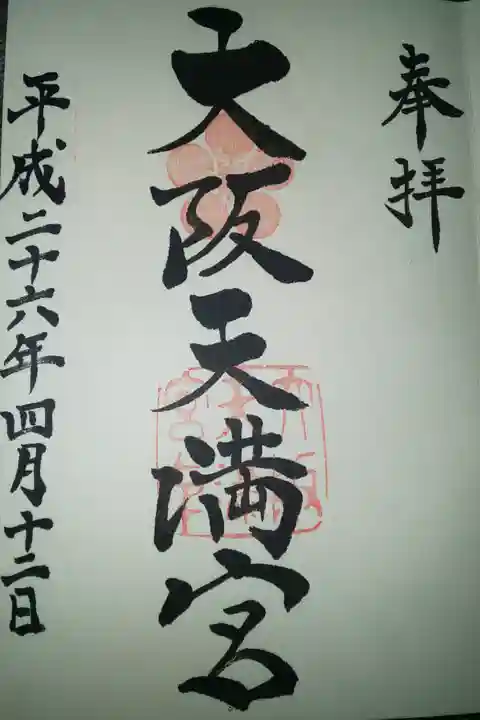 奉拝
大阪天満宮
平成二十六年四月十二日